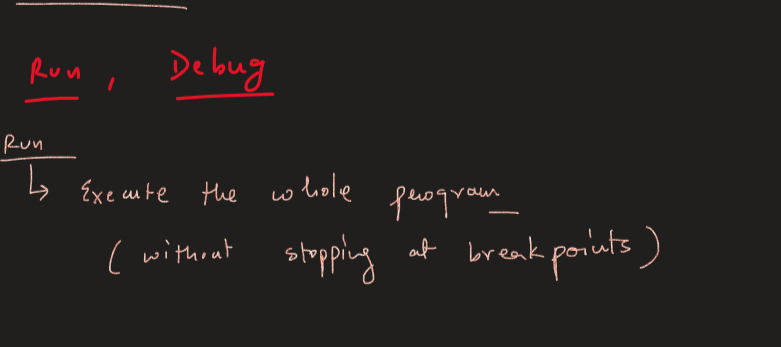 Run, Debug
Run
↳ Execute the whole program
(without stopping at breakpoints)